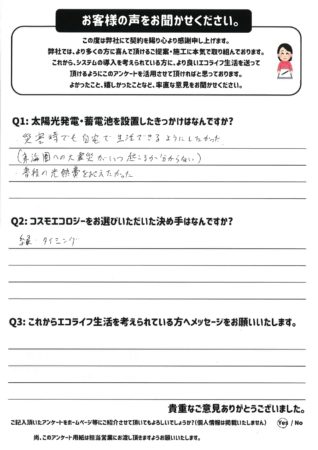 お客様の声をお聞かせください。
この度は弊社にて契約を賜り心より感謝申し上げます。
弊社では、より多くの方に喜んで頂けるご提案・施工に本気で取り組んでおります。
これから、システムの導入を考えられている方に、より良いエコライフ生活を送って
頂けるようにこのアンケートを活用させて頂ければと思っております。
よかったこと、嬉しかったことなど、率直な意見をお聞かせください。
Q1: 太陽光発電・蓄電池を設置したきっかけはなんですか?
災害時でも自宅で生活できるようにしたかった
(東海圏への大震災がいつ起こるか分からない)
・普段の光熱費を抑えたかった
Q2: コスモエコロジーをお選びいただいた決め手はなんですか?
縁・タイミング
Q3: これからエコライフ生活を考えられている方へメッセージをお願いいたします。
貴重なご意見ありがとうございました。
ご記入頂いたアンケートをホームページ等にご紹介させて頂いてもよろしいでしょうか?(個人情報は掲載いたしません) Yes / No
尚、このアンケート用紙は担当営業にお渡し頂きますようお願いいたします。